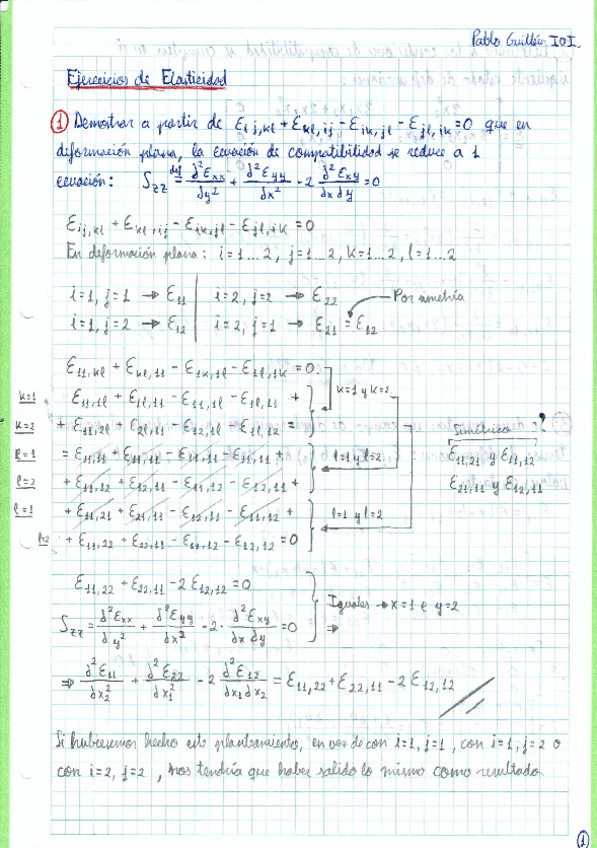 Pablo Guillén IOI.
Ejercicios de Elasticidad
① Demostrar a partir de εij,kl + εkl,ij − εik,jl − εjl,ik = 0 que en
deformación plana, la ecuación de compatibilidad se reduce a 1
ecuación: Szz =def ∂²εxx/∂y² + ∂²εyy/∂x² − 2 ∂²εxy/∂x∂y = 0
εij,kl + εkl,ij − εik,jl − εjl,ik = 0
En deformación plana: i=1...2, j=1...2, k=1...2, l=1...2
i=1, j=1 → ε11 | i=2, j=2 → ε22 Por simetría
i=1, j=2 → ε12 | i=2, j=1 → ε21 = ε12
ε11,kl + εkl,11 − ε1k,1l − ε1l,1k = 0
k=1 ε11,1l + ε1l,11 − ε11,1l − ε1l,11 + k=1 y k=2
k=2 + ε11,2l + ε2l,11 − ε12,1l − ε1l,12 = Simétrico ?
l=1 = ε11,11 + ε11,11 − ε11,11 − ε11,11 + l=1 y l=2 ε11,21 y ε11,12
l=2 + ε11,12 + ε12,11 − ε11,12 − ε12,11 + ε21,11 y ε12,11
l=1 + ε11,21 + ε21,11 − ε12,11 − ε11,12 + l=1 y l=2
l=2 + ε11,22 + ε22,11 − ε12,12 − ε12,12 = 0
ε11,22 + ε22,11 − 2 ε12,12 = 0
Szz = ∂²εxx/∂y² + ∂²εyy/∂x² − 2· ∂²εxy/∂x∂y = 0 Iguales → x=1 e y=2 ⇒
⇒ ∂²ε11/∂x2² + ∂²ε22/∂x1² − 2 ∂²ε12/∂x1∂x2 = ε11,22 + ε22,11 − 2 ε12,12
Si hubiesemos hecho este planteamiento, en vez de con i=1, j=1, con i=1, j=2 o
con i=2, j=2, nos tendría que haber salido lo mismo como resultado.
①